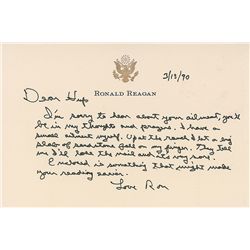 RONALD REAGAN
3/13/90
Dear Hup
I'm sorry to hear about your ailment, you'll
be in my thoughts and prayers. I have a
small ailment myself. Up at the ranch I let a big
slab of sandstone fall on my finger. They tell
me I'll lose the nail and its very sore.
Enclosed is something that might make
your reading easier.
Love Ron